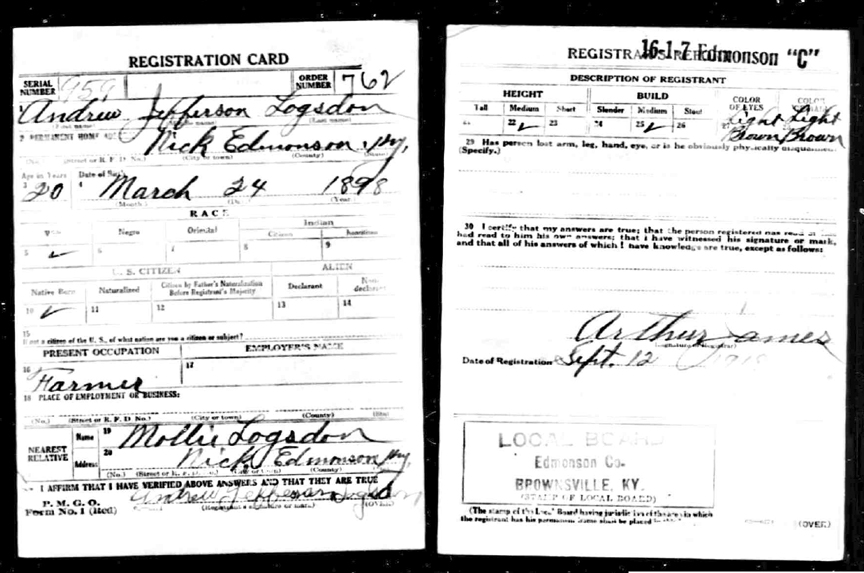 REGISTRATION CARD
SERIAL NUMBER 959 ORDER NUMBER 762
1 Andrew Jefferson Logsdon
(First name) (Last name)
2 PERMANENT HOME
Nick Edmonson Ky,
(No.) (Street or R. F. D. No.) (City or town) (County)
Age in Years Date of Birth
3 20 4 March 24 1898
(Month) (Day) (Year)
RACE
Negro Oriental Indian
Citizen
5 ✓ 6 7 8 9
U. S. CITIZEN ALIEN
Native Born Naturalized Citizen by Father's Naturalization Before Registrant's Majority Declarant Non-declarant
10 ✓ 11 12 13 14
15
If not a citizen of the U. S., of what nation are you a citizen or subject?
PRESENT OCCUPATION EMPLOYER'S NAME
16 Farmer 17
18 PLACE OF EMPLOYMENT OR BUSINESS:
(No.) (Street or R. F. D. No.) (City or town) (County) (State)
NEAREST RELATIVE Name 19 Mollie Logsdon
Address 20 Nick Edmonson Ky,
(No.) (Street or R. F. D. No.) (City or town) (County)
I AFFIRM THAT I HAVE VERIFIED ABOVE ANSWERS AND THAT THEY ARE TRUE
P. M. G. O.
Form No. 1 (Red) Andrew Jefferson Logsdon
(Registrant's signature or mark) (OVER)
16-1-7 Edmonson "C"
DESCRIPTION OF REGISTRANT
HEIGHT BUILD COLOR OF EYES
Tall Medium Short Slender Medium Stout
21 22 ✓ 23 24 25 ✓ 26 27 Light Brown Light Brown
29 Has person lost arm, leg, hand, eye, or is he obviously physically disqualified?
(Specify.)
30 I certify that my answers are true; that the person registered has read or has
had read to him his own answers; that I have witnessed his signature or mark,
and that all of his answers of which I have knowledge are true, except as follows:
Arthur James
(Signature of Registrar)
Date of Registration Sept. 12 1918
LOCAL BOARD
Edmonson Co.
BROWNSVILLE, KY.
(STAMP OF LOCAL BOARD)
(The stamp of the Local Board having jurisdiction of the area in which
the registrant has his permanent home shall be placed
(OVER)